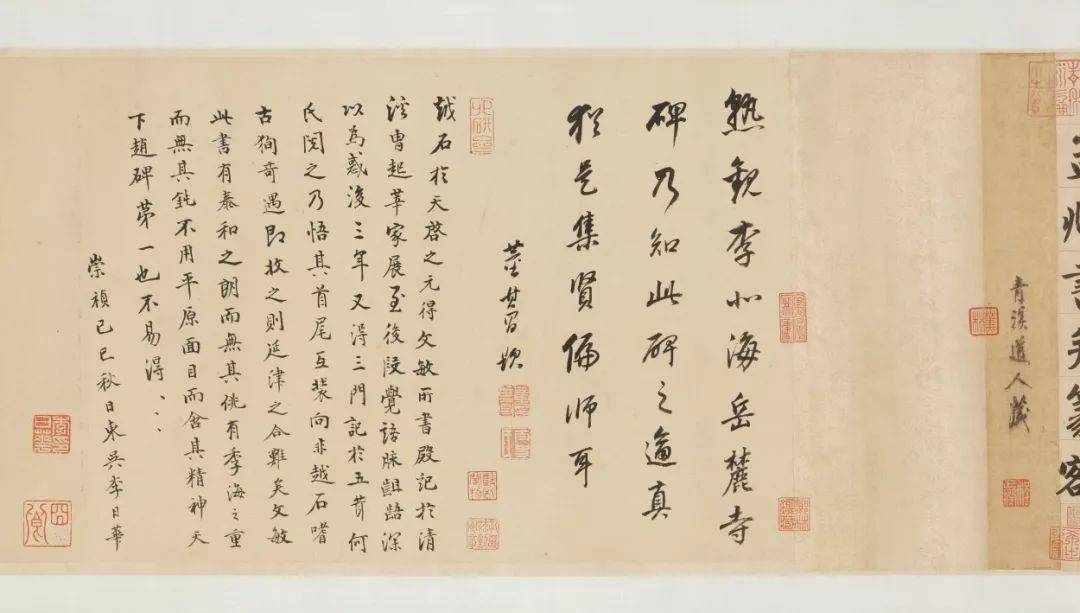 孟頫書并篆額
青溪道人藏
熟觀李北海岳麓寺
碑乃知此碑之逼真
猶是集賢偏師耳
董其昌題
越石於天啓之元得文敏所書殿記於清
溪曹起莘家展至後段覺語脉齟齬深
以為惑後三年又得三門記於五茸何
氏閱之乃悟其首尾互裝向非越石嗜
古狥奇遇即收之則延津之合難矣文敏
此書有泰和之朗而無其佻有季海之重
而無其鈍不用平原面目而含其精神天
下趙碑第一也不易得、、、
崇禎己巳秋日東吳李日華